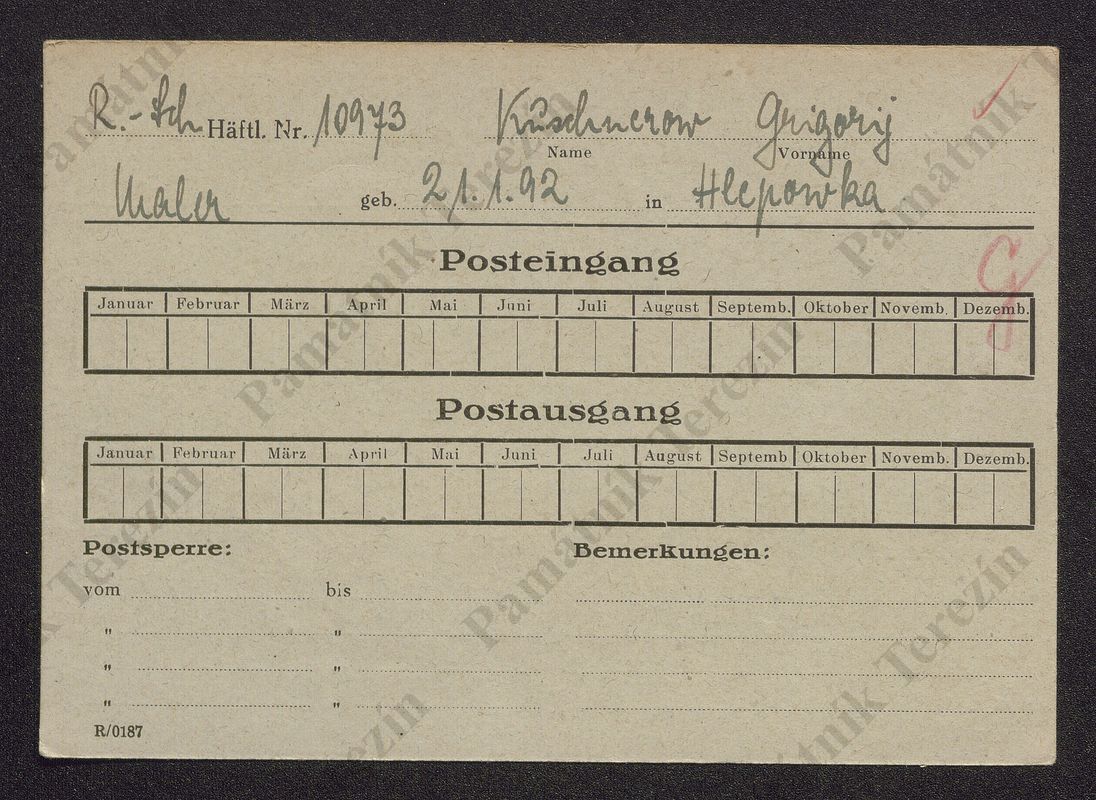 R.-Tch Häftl. Nr. 10973 Kuschnerow Grigorij
Name Vorname
Maler geb. 21.1.92 in Hlepowka
Posteingang
Januar Februar März April Mai Juni Juli August Septemb. Oktober Novemb. Dezemb.
G
Postausgang
Januar Februar März April Mai Juni Juli August Septemb Oktober Novemb. Dezemb.
Postsperre: Bemerkungen:
vom bis
" "
" "
" "
R/0187
Památník Terezín